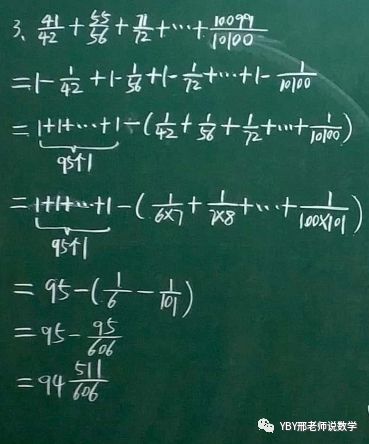 3、41/42 + 55/56 + 71/72 + ··· + 10099/10100
= 1 - 1/42 + 1 - 1/56 + 1 - 1/72 + ··· + 1 - 1/10100
= 1+1+···+1 - (1/42 + 1/56 + 1/72 + ··· + 1/10100)
95个1
= 1+1+···+1 - (1/6×7 + 1/7×8 + ··· + 1/100×101)
95个1
= 95 - (1/6 - 1/101)
= 95 - 95/606
= 94 511/606
YBY邢老师说数学